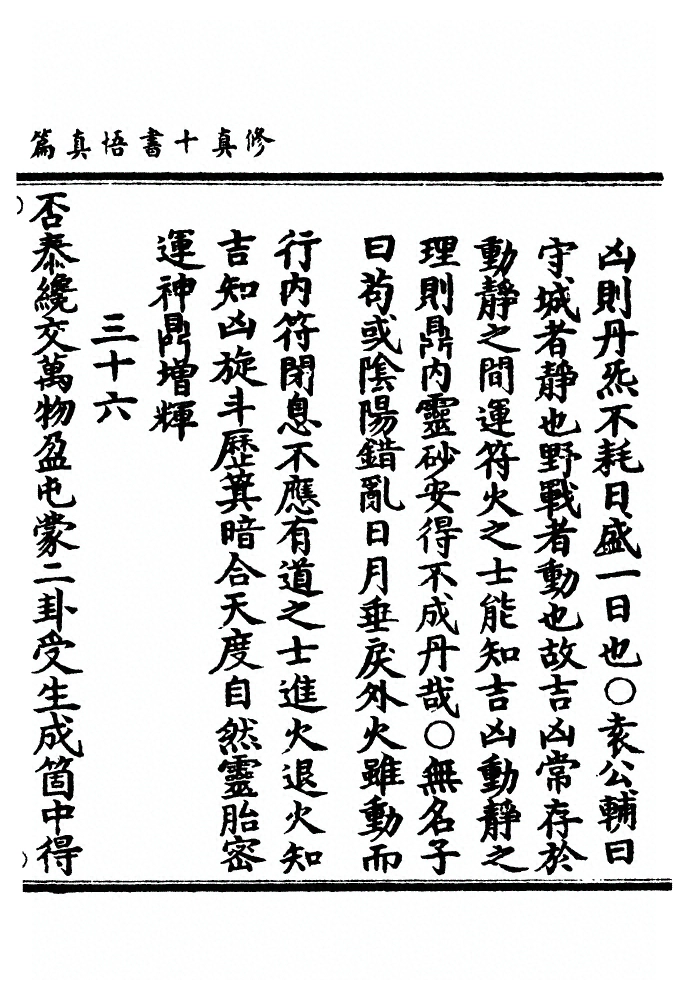 修真十書悟真篇
凶則丹炁不耗日盛一日也○袁公輔曰
守城者靜也野戰者動也故吉凶常存於
動靜之間運符火之士能知吉凶動靜之
理則鼎内靈砂安得不成丹哉○無名子
曰苟或陰陽錯亂日月垂戾外火雖動而
行内符閉息不應有道之士進火退火知
吉知凶旋斗歷箕暗合天度自然靈胎密
運神鼎增輝
三十六
否泰纔交萬物盈屯蒙二卦受生成箇中得